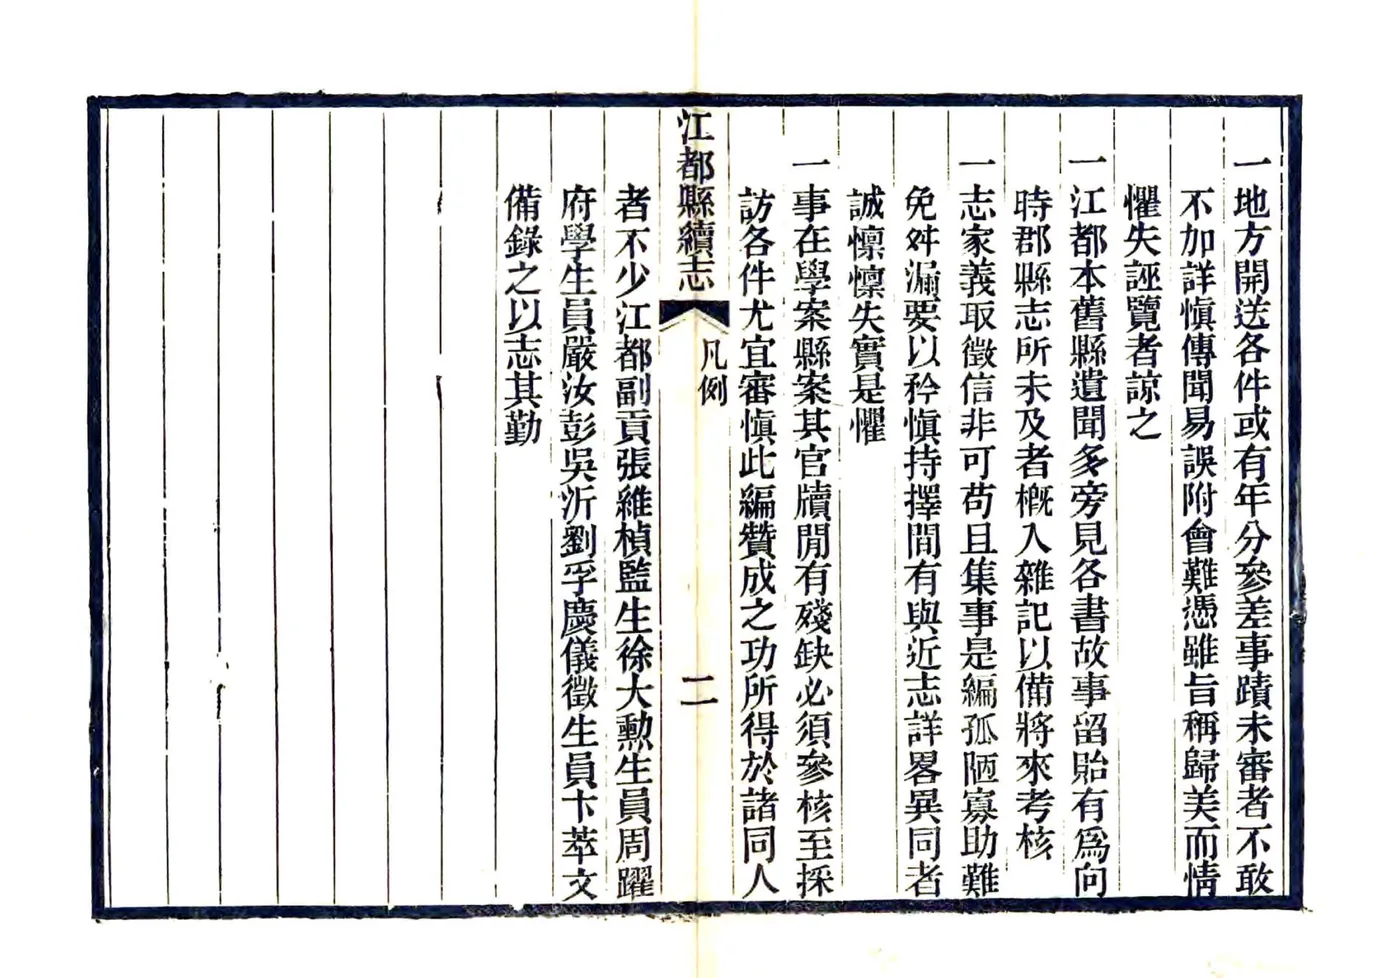 一地方開送各件或有年分參差事蹟未審者不敢
不加詳愼傳聞易誤附會難憑雖旨稱歸美而情
懼失誣覽者諒之
一江都本舊縣遺聞多旁見各書故事留貽有爲向
時郡縣志所未及者槪入雜記以備將來考核
一志家義取徵信非可苟且集事是編孤陋寡助難
免舛漏要以矜愼持擇間有與近志詳畧異同者
誠懍懍失實是懼
一事在學案縣案其官牘閒有殘缺必須參核至採
訪各件尤宜審愼此編贊成之功所得於諸同人
江都縣續志
凡例
二
者不少江都副貢張維楨監生徐大勲生員周躍
府學生員嚴汝彭吳沂劉孚慶儀徵生員卞萃文
備錄之以志其勤